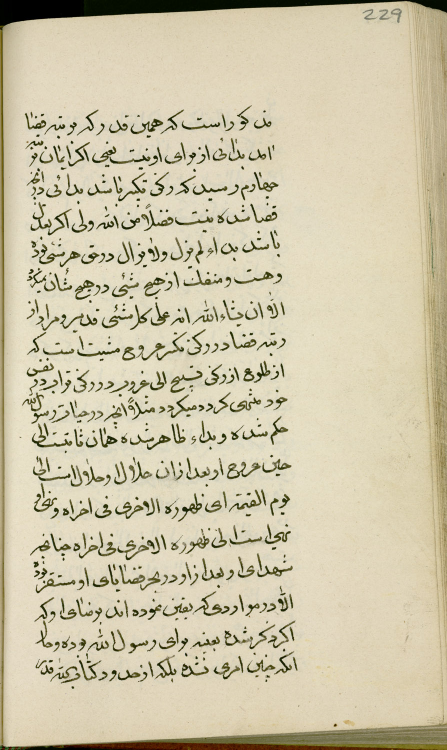 229
مذکور است که همین قدر که مرتبه قضا
امد بدائی از برای او نیست یعنی اگر ایمان
چهارم رسید که رکن تکبیر باشد بدائی در
قضا شده نیست فضلا من الله ولی اگر
باشد بداء لم یزل ولا یزال در حق هر شئ بوده
وهست و منفک از هیچ شیئی در هیچ شأن
الا ان یشاء الله انه علی کل شئ قدیر و مراد از
رتبه قضا در رکن تکبیر عروج مشیت است که
از طلوع از رکن تسبیح الی غروب در رکن
خود منتهی کرده میگردد مثلا انچه در حیات رسول الله
حکم شده و بداء ظاهر شده همان ثابت الی
حین عروج او بعد از ان حلال او حلال است الی
یوم القیمة ای ظهوره الاخری فی اخراه و نهی او
نهی است الی ظهوره الاخری فی اخراه چنانچه
شهدای او بعد از او در بحر قضایای او مستقر بوده
الا در مواردی که یقین نموده اند برضای او که
اکر ذکر شده بعینه برای رسول الله بوده و حال
انکه چنین امری نشده بلکه از حدود کتاب الله قدر